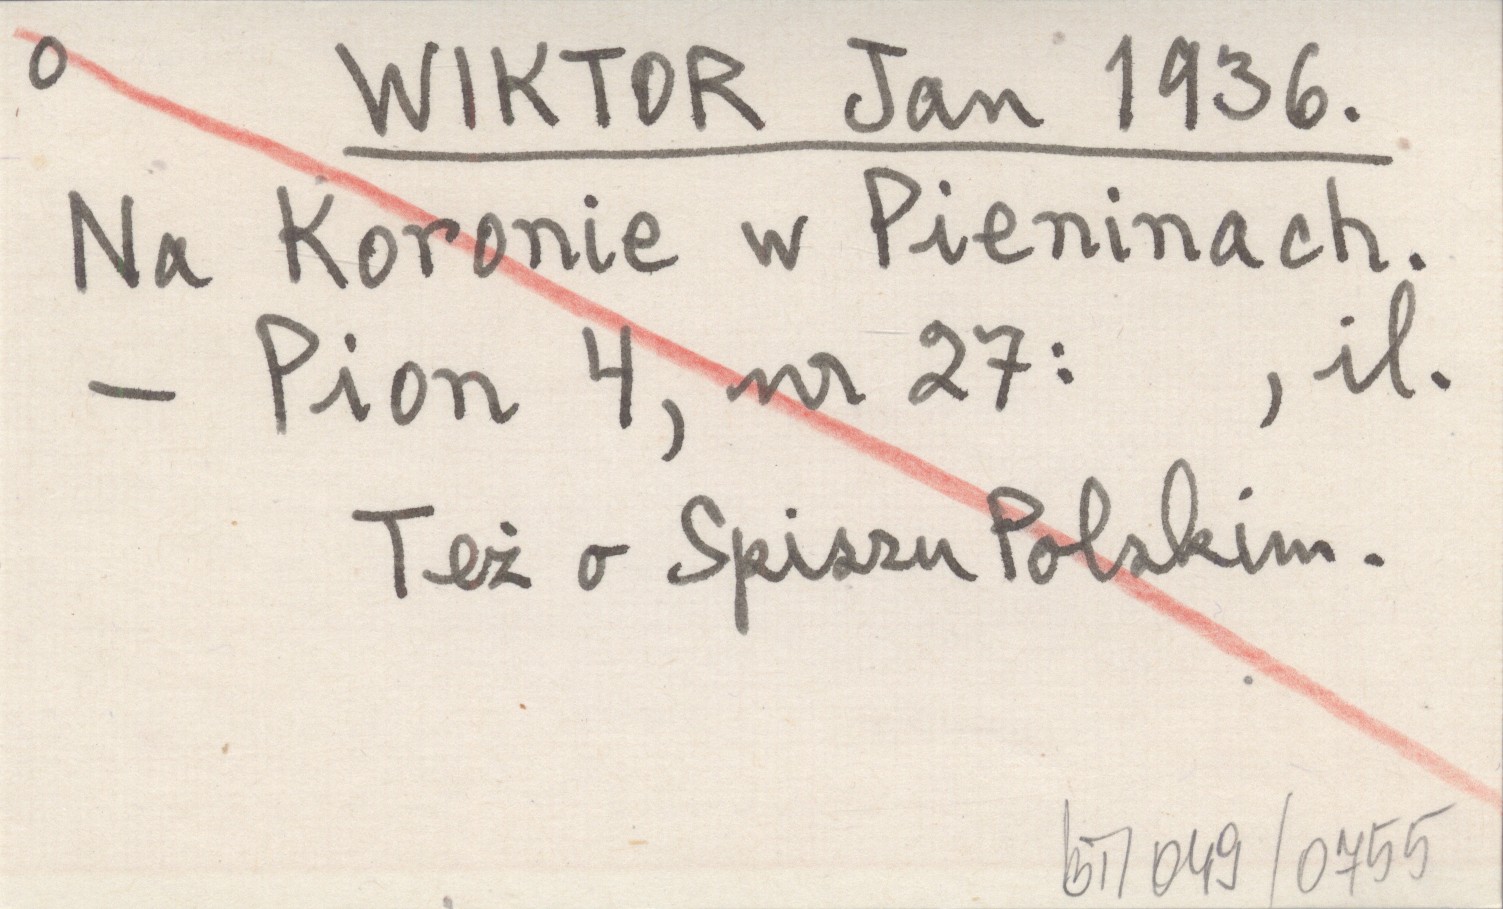 o WIKTOR Jan 1936.
Na Koronie w Pieninach.
– Pion 4, nr 27: , il.
Też o Spiszu Polskim.
049/0755